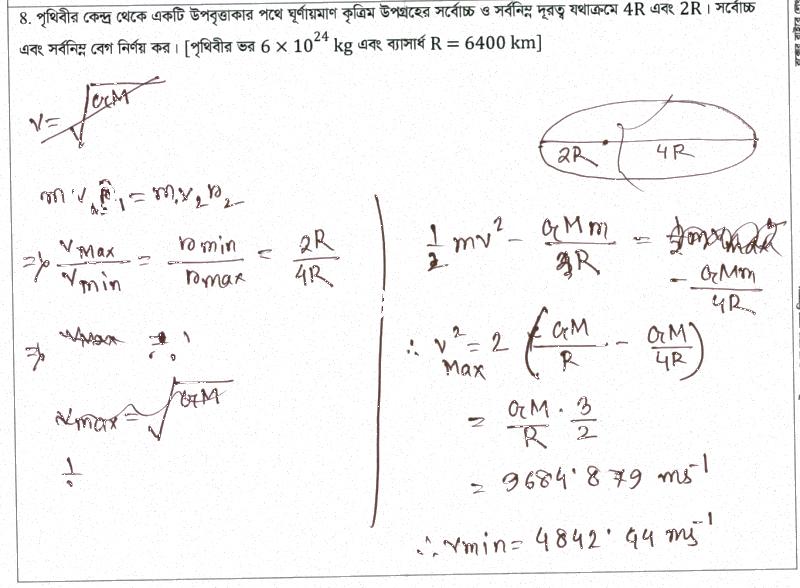 8. পৃথিবীর কেন্দ্র থেকে একটি উপবৃত্তাকার পথে ঘূর্ণায়মাণ কৃত্রিম উপগ্রহের সর্বোচ্চ ও সর্বনিম্ন দূরত্ব যথাক্রমে 4R এবং 2R। সর্বোচ্চ
এবং সর্বনিম্ন বেগ নির্ণয় কর। [পৃথিবীর ভর 6 × 10^24 kg এবং ব্যাসার্ধ R = 6400 km]
v = √GM
2R 4R
m v₁ r₁ = m v₂ r₂
⇒ v max / v min = r min / r max = 2R / 4R
⇒ vmax =
vmax = √GM
1
1/2 mv² - GMm / R =
- GMm / 4R
∴ v²max = 2 (GM / R - GM / 4R)
= GM / R · 3 / 2
= 9684.879 ms⁻¹
∴ vmin = 4842.44 ms⁻¹